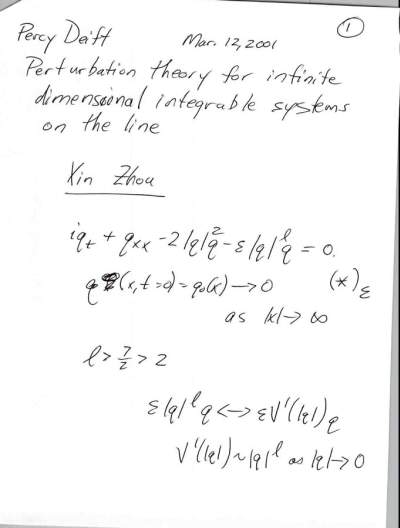 ①
Percy Deift Mar. 12, 2001
Perturbation theory for infinite
dimensional integrable systems
on the line
Xin Zhou
iq_t + q_xx - 2|q|²q - ε|q|^l q = 0.
q(x,t=0) = q₀(x) → 0 (*)_ε
as |x| → ∞
l > 7/2 > 2
ε|q|^l q ↔ εV'(|q|)q
V'(|q|) ~ |q|^l as |q| → 0